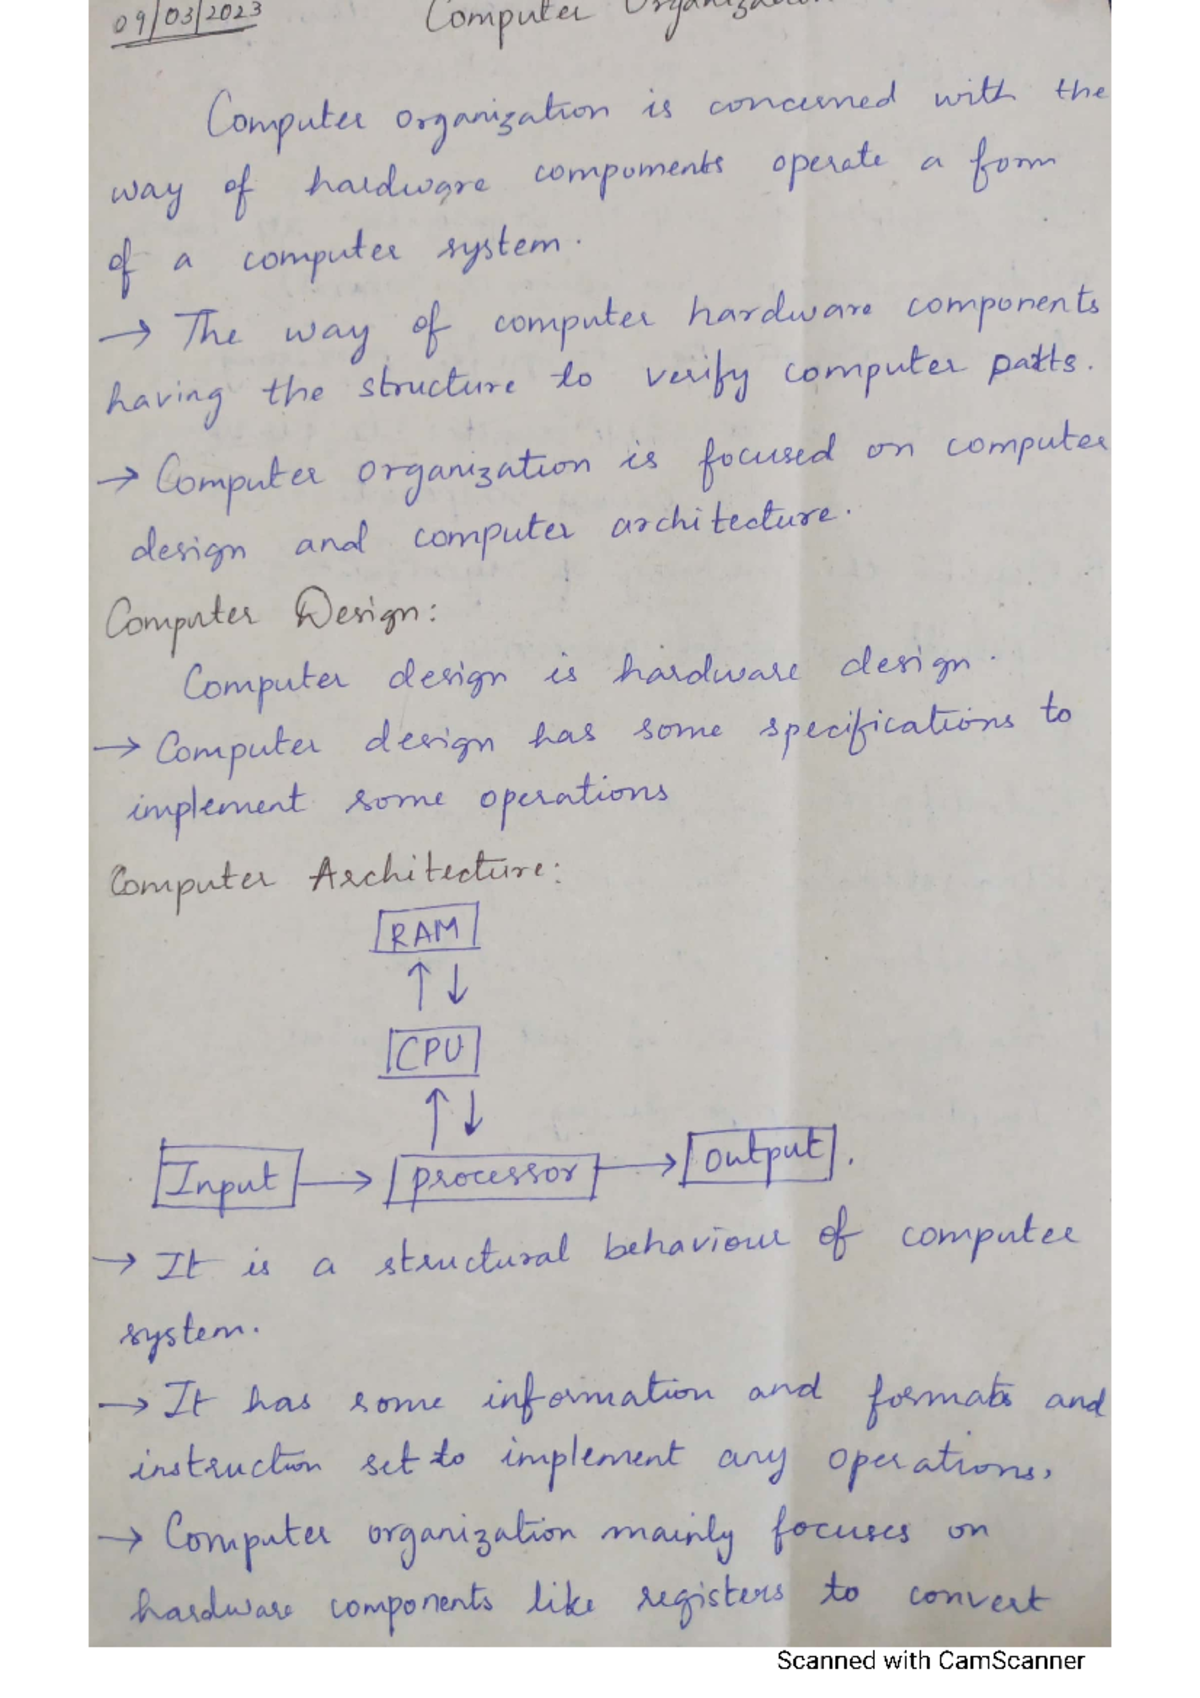 09/03/2023
Computer Organization
Computer organization is concerned with the
way of hardware compoments operate a form
of a computer system.
→ The way of computer hardware components
having the structure to verify computer parts.
→ Computer organization is focused on computer
design and computer architecture.
Computer Design:
Computer design is hardware design.
→ Computer design has some specifications to
implement some operations
Computer Architecture:
RAM
↑ ↓
CPU
↑ ↓
Input → processor → output.
→ It is a structural behaviour of computer
system.
→ It has some information and formats and
instruction set to implement any operations.
→ Computer organization mainly focuses on
hardware components like registers to convert
Scanned with CamScanner